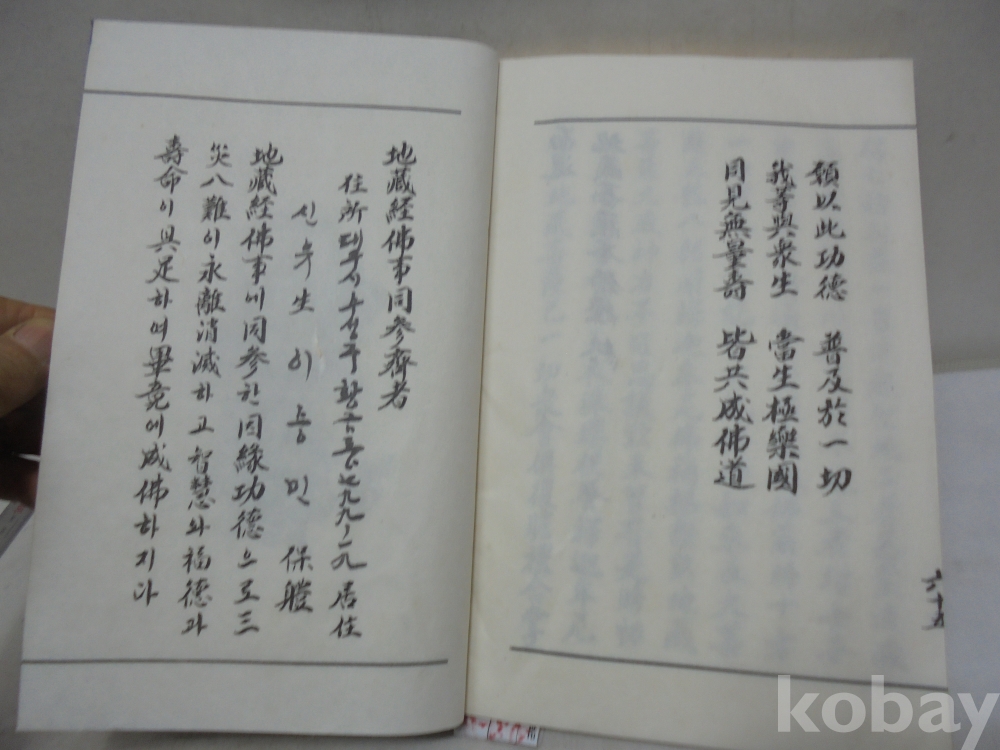 願以此功德 普及於一切
我等與衆生 當生極樂國
同見無量壽 皆共成佛道
六十五
地藏経佛事同參齊者
住所 대구시 수성구 황금동 七九九,一九 居住
신축生 이동민 保體
地藏経佛事에 同參한 因緣功德으로 三
災八難이 永離消滅하고 智慧와 福德과
壽命이 具足하여 畢竟에 成佛하지다
kobay